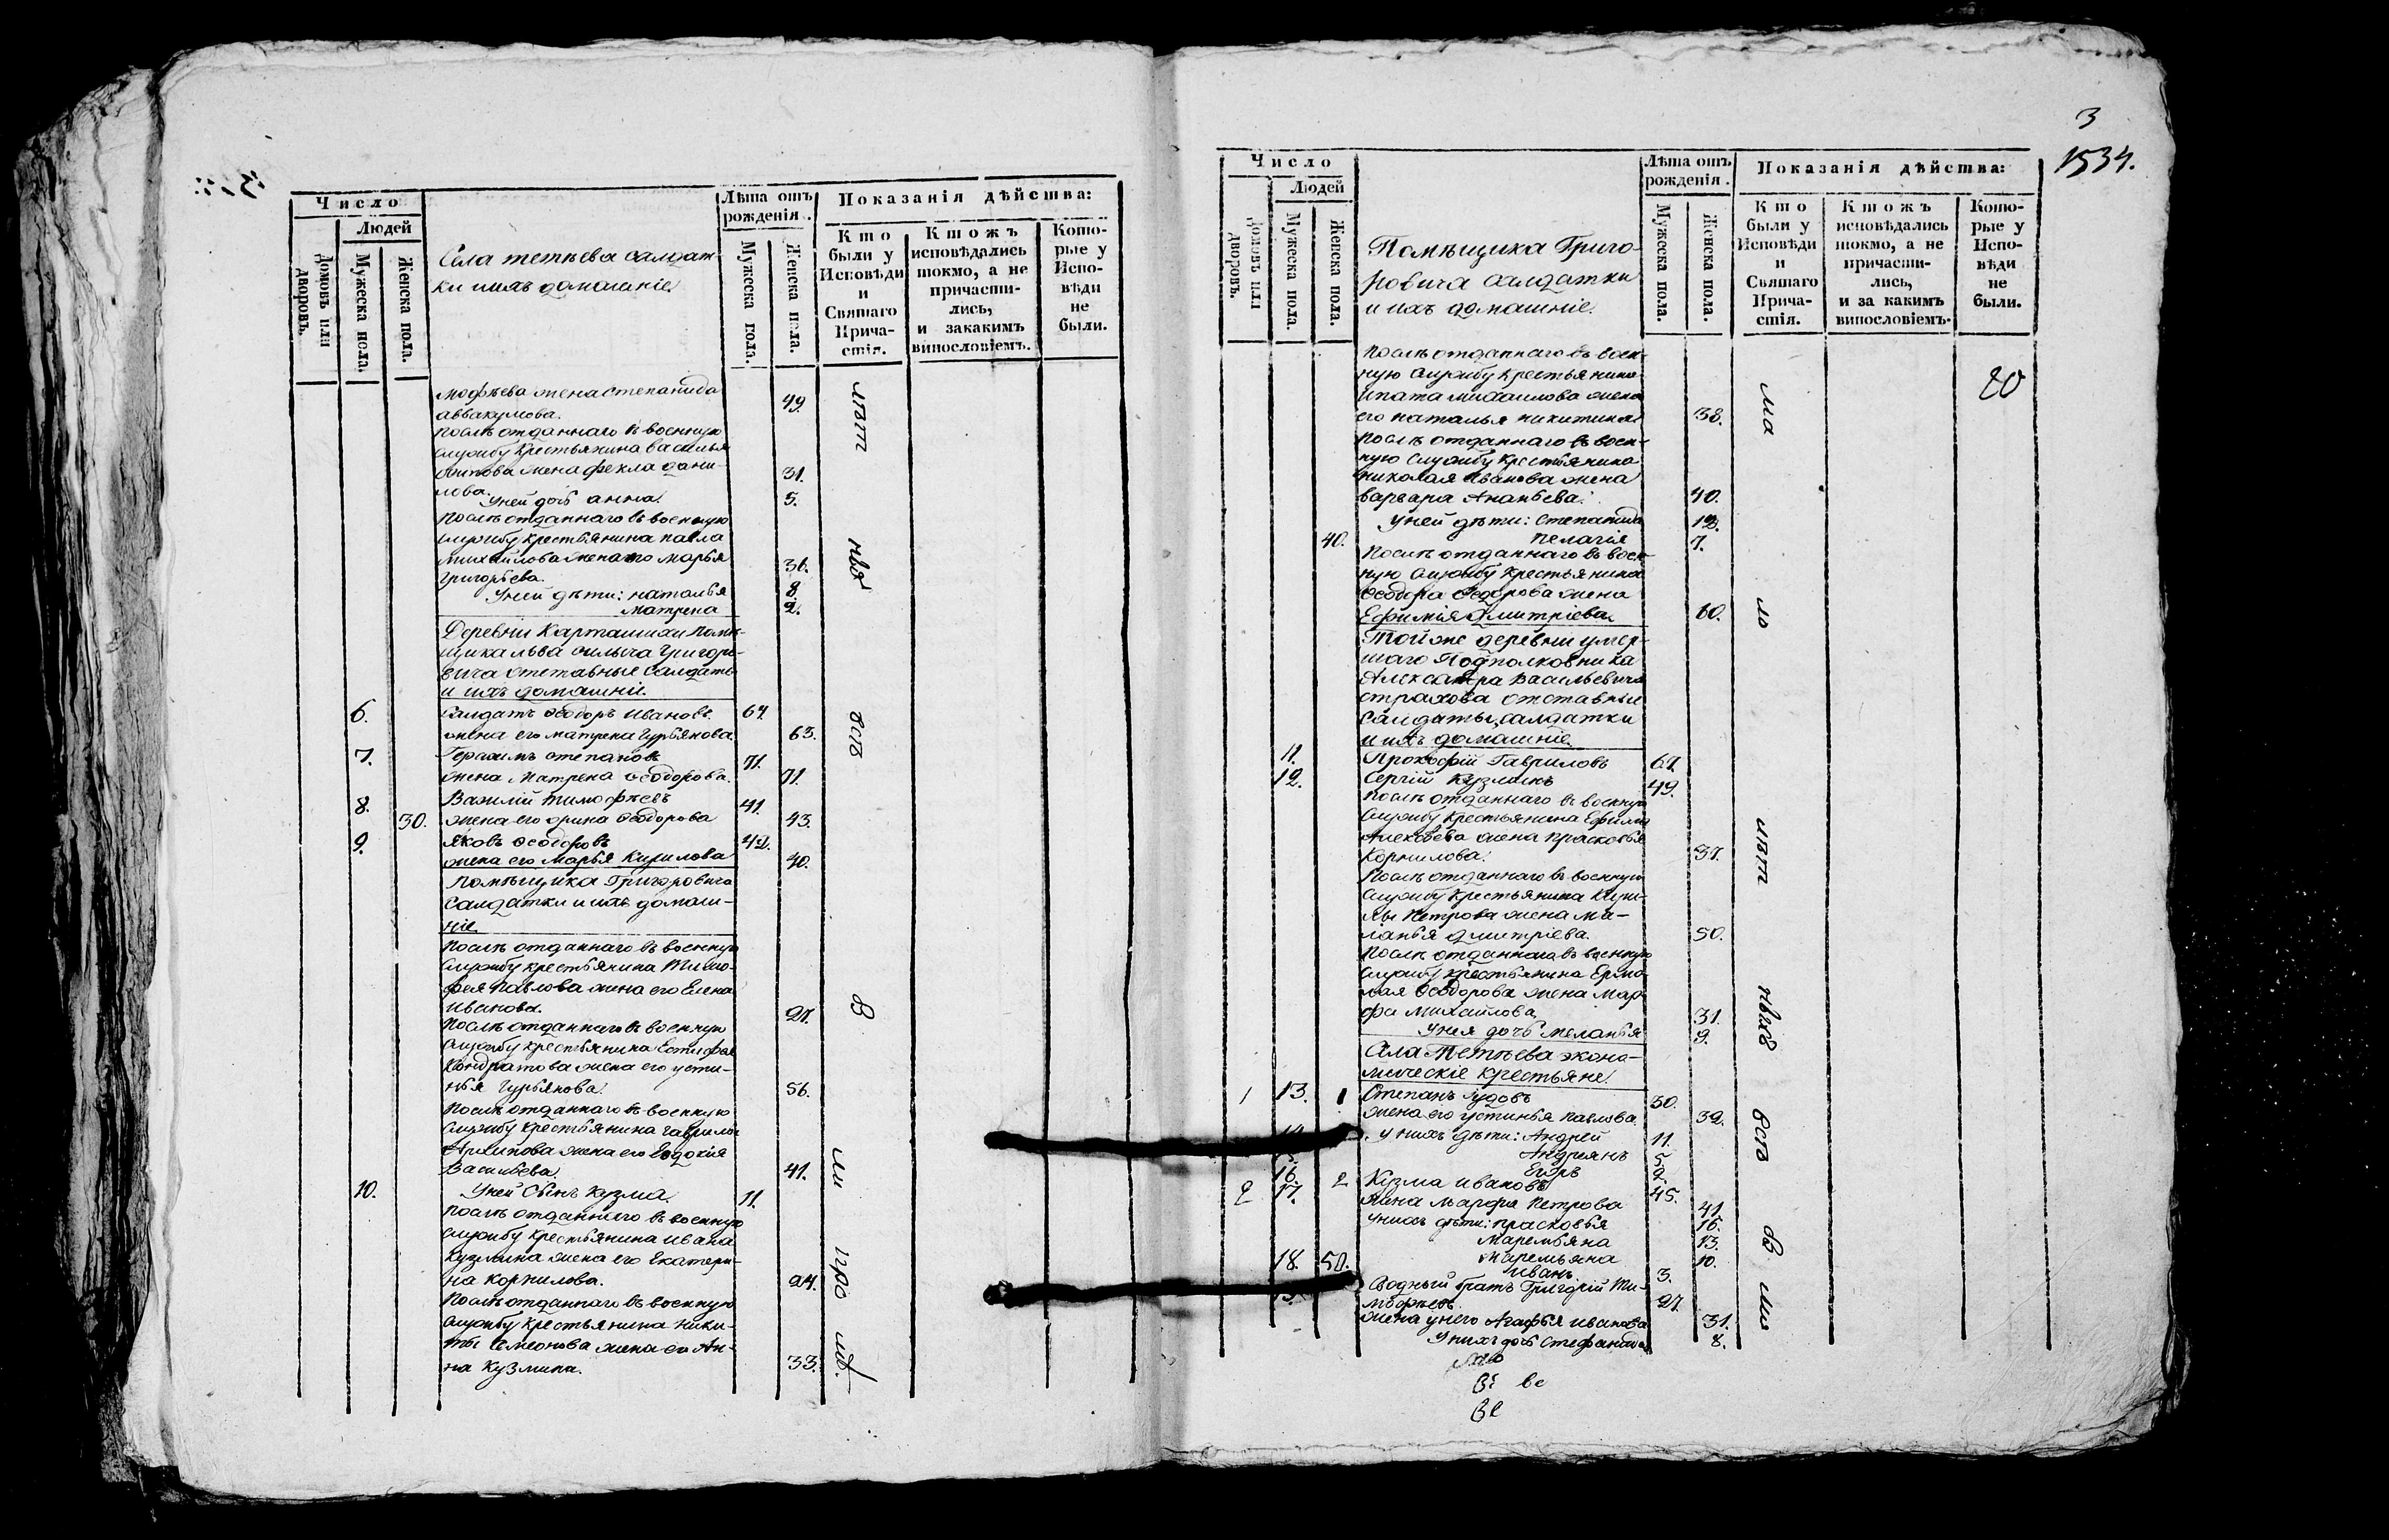 Число
Людей
Домовъ или дворовъ.
Мужеска пола.
Женска пола.
Села тетѣева салдат-
ки ихъ домашнїе
Лѣта отъ рожденїя.
Мужеска пола.
Женска пола.
Показанїя дѣйства:
Кто были у Исповѣди и Святаго Прича-стїя.
Ктожъ исповѣдались токмо, а не причасти-лись, и закакимъ винословїемъ.
Кото-рые у Испо-вѣди не были.
мофѣева жена степанида 49.
аввакумова.
послѣ отданнаго въ военную
службу крестьянина василья
жена фекла дани- 31.
лова.
У ней дочь анна. 5.
послѣ отданнаго въ военную
службу крестьянина павла
михайлова жена его марья 36.
григорьева.
У ней дѣти: наталья 8.
матрена 2.
Деревни Карташихи помѣ-
щика льва силыча григоро-
вича отставные салдаты
и ихъ домашнїе.
6. Салдатъ Ѳеодоръ Ивановъ 67.
жена его матрена гурьянова. 63.
7. Герасимъ степановъ 71.
жена матрена Ѳеодорова. 71.
8. Василїй тимофѣевъ 41.
30. жена его орина Ѳеодорова 43.
9. Яковъ Ѳеодоровъ 42.
жена его Марья Кирилова 40.
помѣщика Григоровича
салдатки и ихъ домаш-
нїе.
послѣ отданнаго въ военную
службу крестьянина Тимо-
фея павлова жена его Елена
иванова. 27.
послѣ отданнаго въ военную
службу крестьянина Естифея
Кондратова жена его усти-
нья гурьянова. 56.
послѣ отданнаго въ военную
службу крестьянина гаврилы
Архипова жена его Евдокия
Васильева. 41.
10. У ней сынъ Кузма. 11.
послѣ отданнаго въ военную
службу крестьянина ивана
кузмина жена его Екатери-
на корнилова. 24.
послѣ отданнаго въ военную
службу крестьянина ники-
ты семенова жена его Ан-
на Кузмина. 33.
3
1534.
Число
Людей
Домовъ или дворовъ.
Мужеска пола.
Женска пола.
Помѣщика Григо-
ровича салдатки
и ихъ домашнїе.
Лѣта отъ рожденїя.
Мужеска пола.
Женска пола.
Показанїя дѣйства:
Кто были у Исповѣди и Святаго Прича-стїя.
Ктожъ исповѣдались токмо, а не причасти-лись, и за какимъ винословїемъ.
Кото-рые у Испо-вѣди не были.
послѣ отданнаго въ воен-
ную службу крестьянина
ипата михаилова жена
его наталья никитина 38.
послѣ отданнаго въ воен-
ную службу крестьянина
николая иванова жена
варвара Ананьева. 40.
у ней дѣти: степанида 12.
40. пелагїя 7.
послѣ отданнаго въ воен-
ную службу крестьянина
Ѳеодора Ѳедорова жена
Ефимїя дмитрїева. 60.
Той же деревни умер-
шаго Подполковника
Александра Васильевича
страхова отставные
салдаты, салдатки
и ихъ домашнїе.
11. Прокофїй Гавриловъ 67.
12. Сергїй Кузминъ 49.
послѣ отданнаго въ военную
службу крестьянина Ефима
Алексѣева жена прасковья
Корнилова. 37.
послѣ отданнаго въ военную
службу крестьянина Кири-
лы петрова жена ма-
ланья дмитрїева. 50.
послѣ отданнаго въ военную
службу крестьянина Ермо-
лая Ѳеодорова жена мар-
фа михаилова. 31.
у нея дочь меланья 9.
Села Тетѣева эконо-
мическїе крестьяне.
1 13. 1 Степанъ 30.
жена его устинья павлова. 32.
у нихъ дѣти: Андрей 11.
Андреянъ 5.
16. Егоръ 2.
2 17. 2 Кузма ивановъ 45.
жена марфа петрова 41.
у нихъ дѣти: прасковья 16.
Маремьяна 13.
Маремьяна 10.
18. 50. Иванъ 3.
Сводный братъ Григорїй Ти-
мофѣевъ 27.
жена у него Агафья иванова 31.
у нихъ дочь стефанида 8.
ве